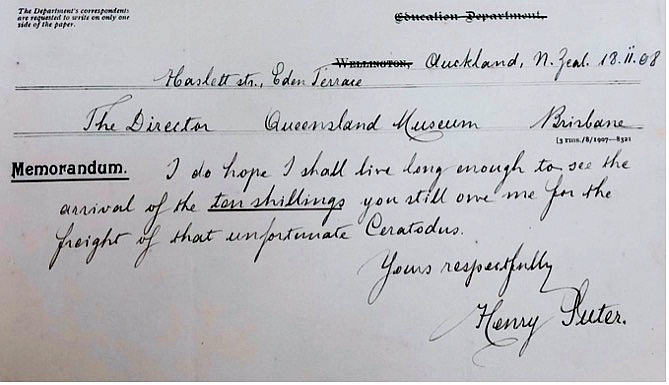 The Department's correspondents
are requested to write on only one
side of the paper.
Education Department.
Wellington, Auckland, N. Zeal. 18.II.08
Haslett str., Eden Terrace
The Director Queensland Museum Brisbane
[3 rms./8/1907—8321
Memorandum. I do hope I shall live long enough to see the
arrival of the ten shillings you still owe me for the
freight of that unfortunate Ceratodus.
Yours respectfully
Henry Suter.